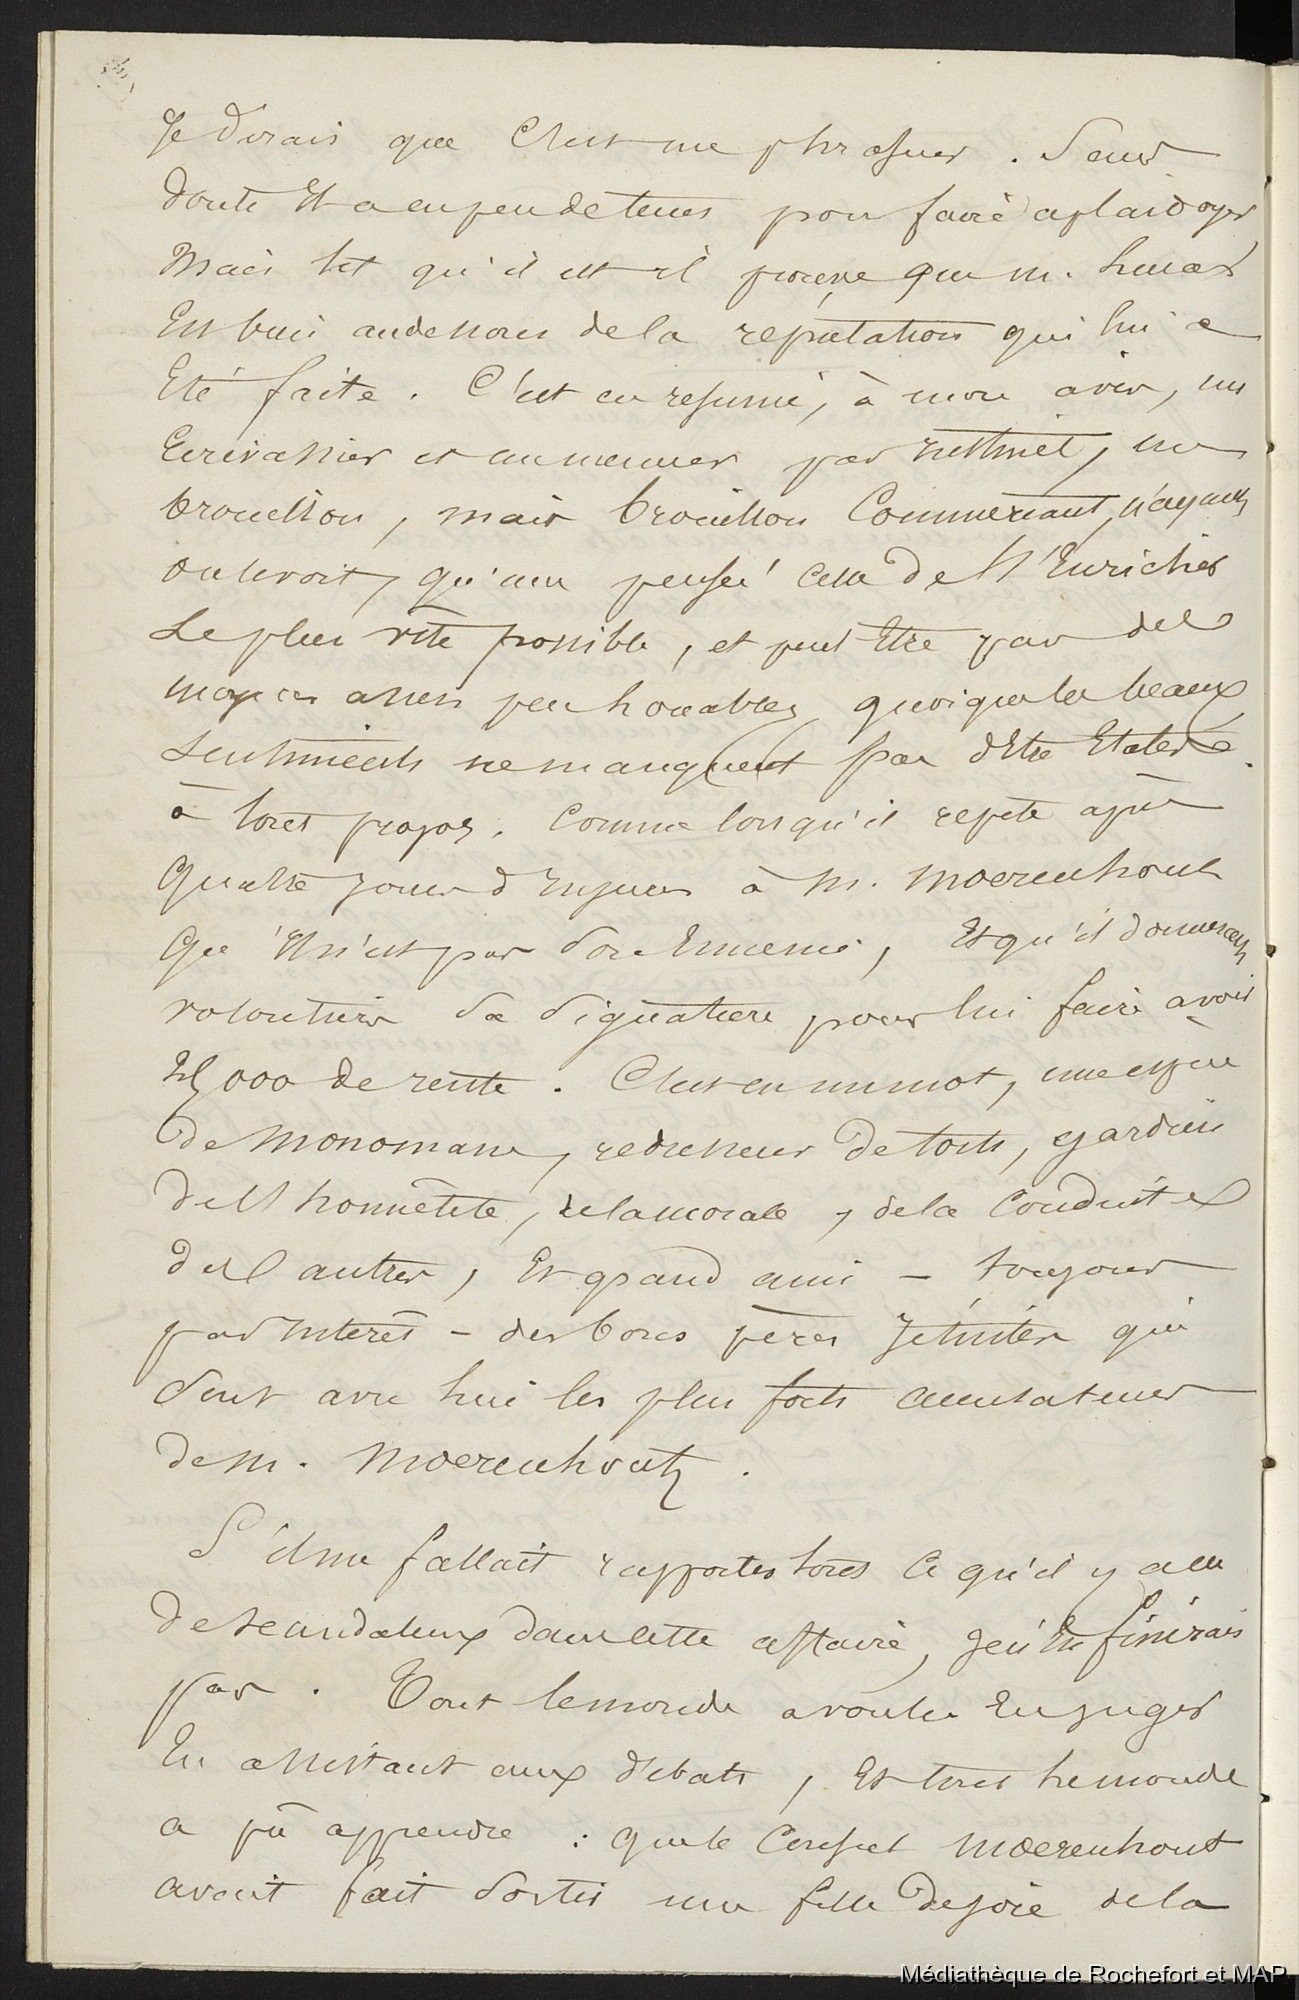 Je dirais que C'est un phraseur. Sans
doute Il a eu peu de tems pour faire ce plaidoyer
Mais tel qu'il est il prouve que M. Lucas
Est bien au dessous de la reputation qui lui a
Eté faite. C'est en resumé, à mon avis, un
Ecrivassier et un meneur par interêt, un
brouillon, mais brouillon Commercant, n'ayant
on le voit, qu'une pensée celle de S'Enrichir
Le plus vite possible, et peut Etre par des
moyens assez peu honorables quoique les beaux
sentiments ne manquent pas d'Etre Etalés
à tout propos. Comme lorsqu'il repète après
Quatre jours d'injures à M. Moerenhout
Qu'Il n'est pas Son Ennemi, Et qu'il donnerait
volontiers Sa Signature pour lui faire avoir
25,000 de rente. C'est en un mot, une espèce
de Monomane, redresseur de torts, gardien
de l'honnêteté, de la morale, de la Conduite
des autres, Et grand ami – toujours
par interêt – des bons pères Jésuites qui
Sont avec lui les plus forts accusateurs
de M. Moerenhout.
S'il me fallait rapporter tout Ce qu'il y a eu
de scandaleux dans cette affaire, je n'En finirais
pas. Tout le monde a voulu En juger
En assistant aux débats, Et tout le monde
a pû apprendre : que le Consul Moerenhout
avait fait Sortir une fille de joie de la
Médiathèque de Rochefort et MAP